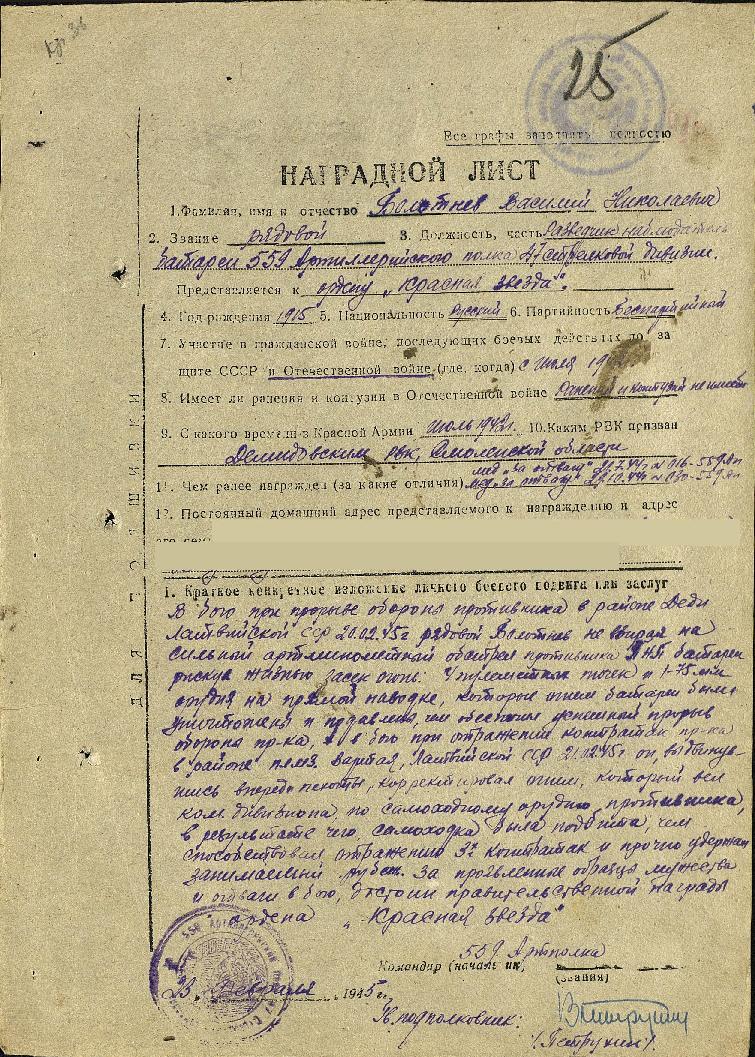 25
Все графы заполнять полностью
НАГРАДНОЙ ЛИСТ
1. Фамилия, имя и отчество Болотнев Василий Николаевич
2. Звание рядовой 3. Должность, часть Разведчик наблюдатель
батареи 559 Артиллерийского полка 47 стрелковой дивизии.
Представляется к ордену „Красная звезда".
4. Год рождения 1915 5. Национальность Русский 6. Партийность Беспартийный
7. Участие в гражданской войне, последующих боевых действиях по за
щите СССР и Отечественной войне (где, когда) с июля 19
8. Имеет ли ранения и контузии в Отечественной войне Ранений и контузий не имеет
9. С какого времени в Красной Армии июль 10. Каким РВК призван
Демидовским РВК, Смоленской области
11. Чем ранее награжден (за какие отличия) мед. „За отвагу"
мед. „За отвагу"
12. Постоянный домашний адрес представляемого к награждению и адрес
его
ДЛЯ ПОДШИВКИ
1. Краткое конкретное изложение личного боевого подвига или заслуг
В бою при прорыве оборона противника в районе Деди
Латвийской ССР 20.02.45г рядовой Болотнев не взирая на
сильный артминометный обстрел противника батареи
рискуя жизнью засек огонь: пулеметных точек и 1-75 мм
орудия на прямой наводке, которое огнем батареи были
уничтожены и подавлены, чем обеспечил успешный прорыв
оборона пр-ка, в бою при отражении контратак пр-ка
в районе Вартая, Латвийской ССР 21.02.45г он, выдвинув-
шись впереди пехоты, корректировал огнем, который вел
ком. дивизиона, по самоходному орудию противника,
в результате чего, самоходка была подбита, чем
способствовал отражению 3х контратак и прочно удержан
занимаемый рубеж. За проявленные образца мужества
и отваги в бою, достоин правительственной награды
ордена „Красная звезда"
559 Артполка
Командир (начальник)
(звания)
23 Февраля 1945 г.
Гв. подполковник:
/Петрухин/.